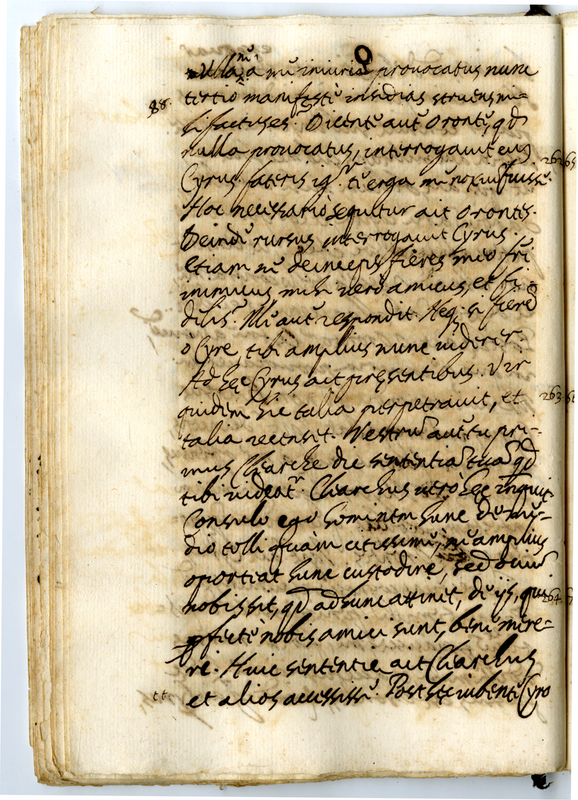 nulla a me iniuria provocatus nunc
88. tertio manifeste insidias struens mi-
si factus es? Dicente aut Oronte, qd
nulla provocatus, interrogavit eum
Cyrus. fateris igr te erga me noxiu fuisse
Hoc necessario sequitur ait Orontes.
Deinde rursus interrogavit Cyrus.
etiam ne deinceps fieres meo fri
inimicus mihi vero amicus, et fi-
delis? Ille aut respondit. Neq; si fiere
o Cyre, tibi amplius nunc viderer.
Ad hęc Cyrus ait pręsentibus. Vir
quidem hic talia perpetravit, et
talia recenset. Vestru aut tu pri-
mus Clearche dic sententia tua qd
tibi videatr. Clearchus vero hęc inquit
Consulo ego hominem hunc de me-
dio tolli quàm citissime, ne amplius
oporteat hunc custodire, sed ociu
nobis sit, qd ad hunc attinet, de ijs, qui
pfecte nobis amici sunt, bene mere-
ri. Huic sententię ait Clearchus
et alios accessisse. Post hęc iubente Cyro